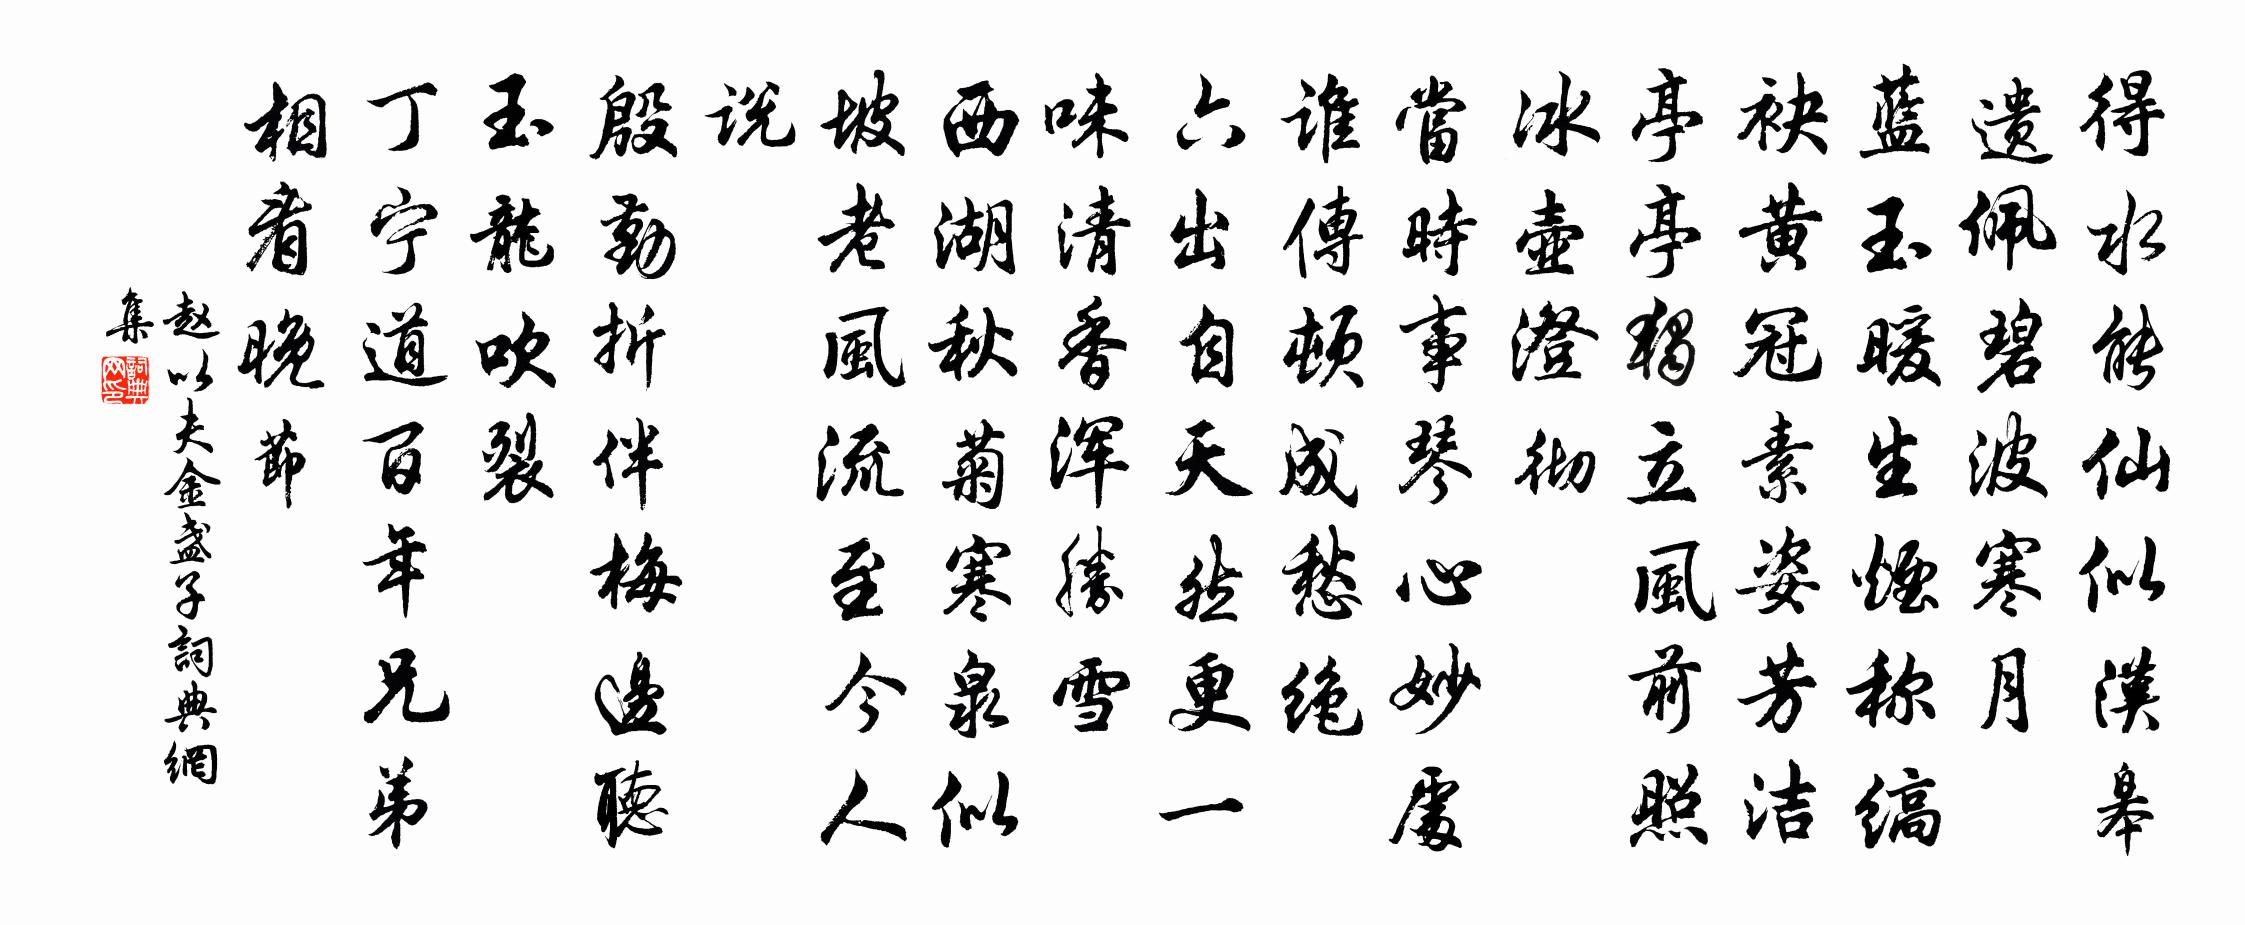 得水能仙似漢皋
遗佩碧波寒月
藍玉暖生煙称缟
袂黄冠素姿芳洁
亭亭獨立風前照
冰壺澄彻
當時事琴心妙處
谁傳顿成愁绝
六出自天然更一
味清香浑勝雪
西湖秋菊寒泉似
坡老風流至今人
说
殷勤折伴梅邊聽
玉龍吹裂
丁宁道百年兄弟
相看晚節
赵以夫金盏子詞典網
集
詞典